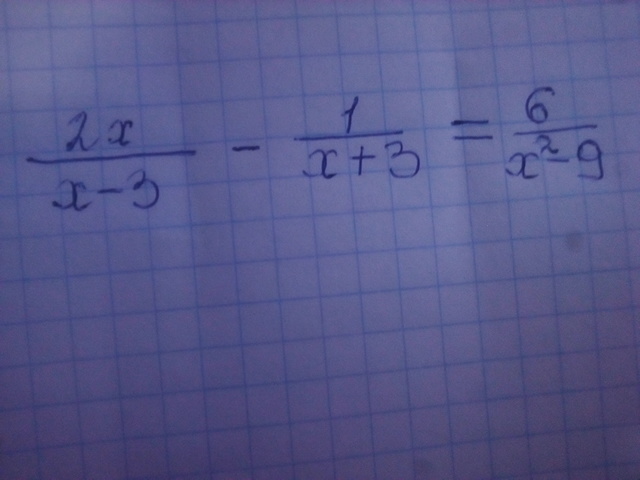 2x/(x-3) - 1/(x+3) = 6/(x²-9)